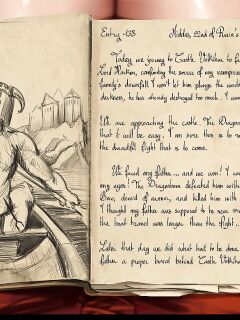 Entry 138 Middas, 22nd of Rain's
Today we journey to Castle Volkihar to f
Lord Harkon, confronting the source of my vampiric
family's downfall. I won't let him plunge the world
darkness, he has already destroyed too much. I won
We are approaching the castle. The Dragon
that it will be easy. I am sure this is no
the dreadful fight that is to come.
We faced my father... and we won! I co
my eyes! The Dragonborn defeated him with
Bow, devoid of armor, and killed him with
I thought my father was supposed to be near
the boat travel was longer than the fight...
Later that day we did what had to be done.
father a proper burial behind Castle Volkihar